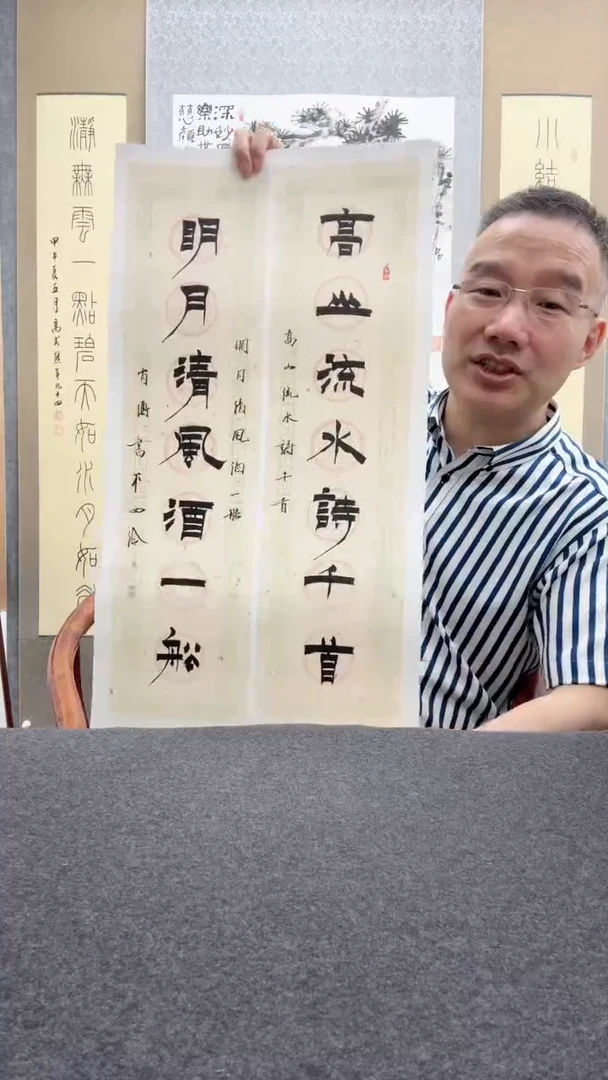 高山流水詩千首
高山流水詩千首
明月清風酒一船
明月清風酒一船
小結
深妙
樂助世
慈顏
瀞無雲一點碧天如水月如
甲午夏五月高式熊年九十四